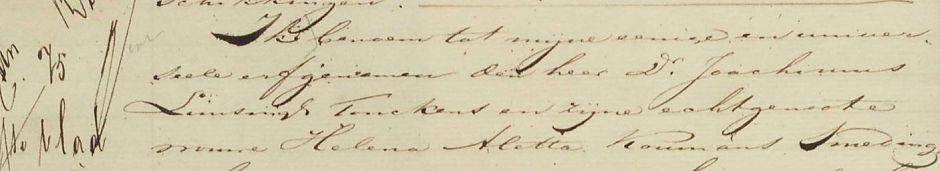 schikkingen.
Ik benoem tot mijne eenige en univer-
seele erfgenamen den heer Dr. Joachimus
Lunsingh Tonckens en zijne echtgenoote
Helena Aletta Koumans Smeding
75
blad